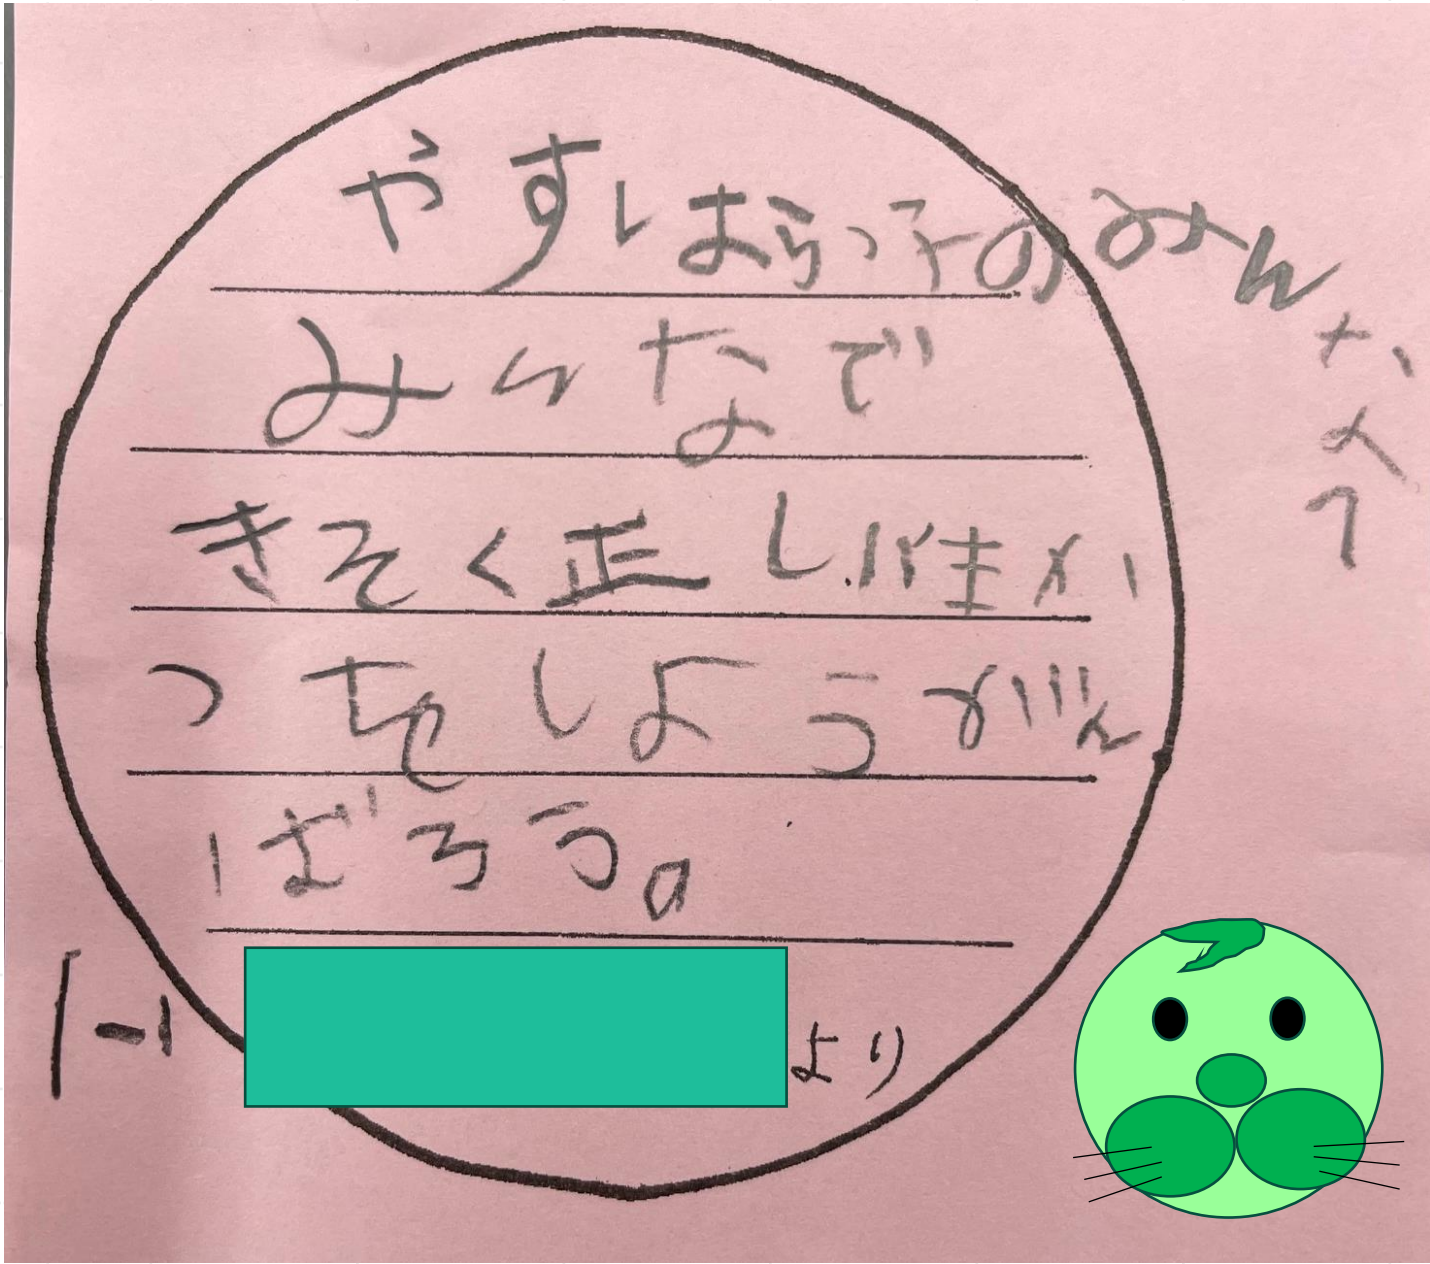 やすはらっ子のみんなへ
みんなで
きそく正しい生か
つをしようがん
ばろう。
1-1 より